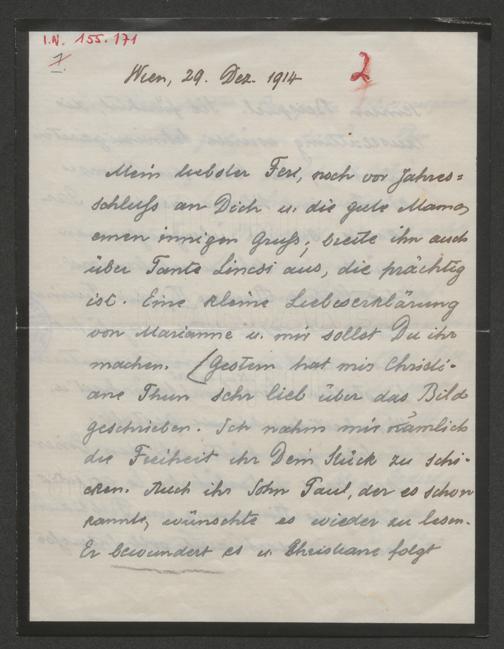 I.N. 155.171
1.
2
Wien, 29. Dez. 1914
Mein liebster Ferl, noch vor Jahres=
schluß an Dich u. die gute Mama
einen innigen Gruß; breite ihn auch
über Tante Lincsi aus, die prächtig
ist. Eine kleine Liebeserklärung
von Marianne u. mir sollst Du ihr
machen. (Gestern hat mir Christi-
ane Thun sehr lieb über das Bild
geschrieben. Ich nahm mir nämlich
die Freiheit ihr Dein Stück zu schi-
cken. Auch ihr Sohn Paul, der es schon
kannte, wünschte es wieder zu lesen.
Er bewundert es u. Christiane folgt